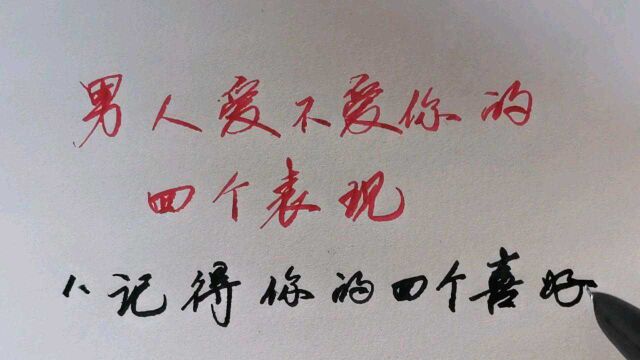 男人爱不爱你的
四个表现
1、记得你的四个喜好